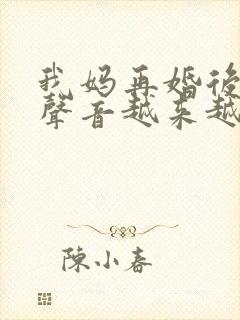 我妈再婚後
聲音越来越
陳小春